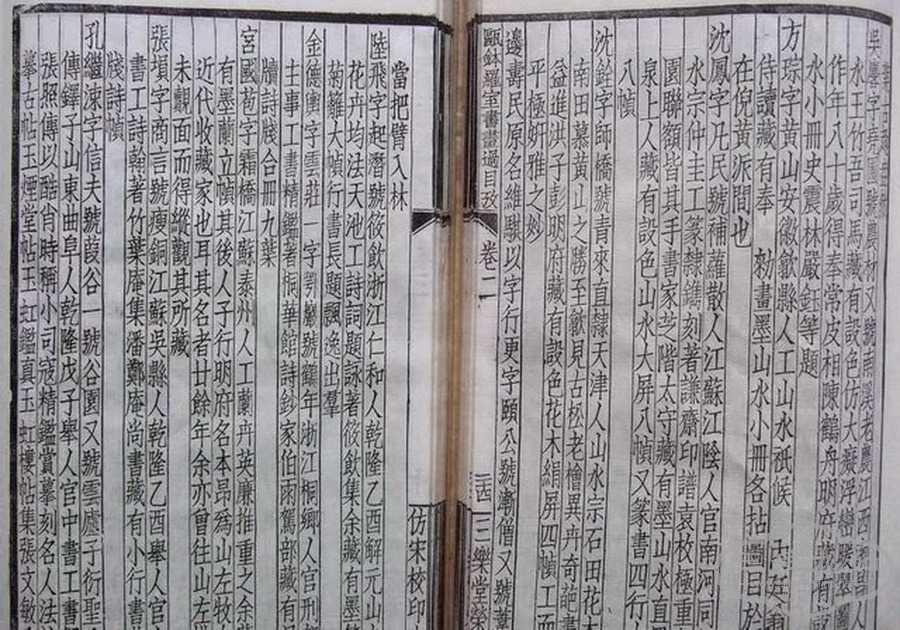 水王竹吾司馬藏有設色仿大癡浮巒暖翠圖
作年八十歲得奉常皮相陳鶴舟明府藏有
水小冊史震林嚴鈺等題
方琮字黃山安徽歙縣人工山水祇候 內廷
侍讀藏有奉 勑畫墨山水小冊各拈圖目於
在倪黃派間也
沈鳳字凡民號補蘿散人江蘇江陰人官南河同
水宗仲圭工篆隸鐫刻著謙齋印譜袁枚極重
園聯額皆其手書家芝階太守藏有墨山水直
泉上人藏有設色山水大屏八幀又篆書四行
八幀
沈銓字師橋號青來直隸天津人山水宗石田花
南田慕黃山之勝至歙見古松老檜異卉奇葩
益進洪子彭明府藏有設色花木絹屏四幀工而
平極妍雅之妙
邊壽民原名維騏以字行更字頤公號漸僧又號葦
甌鉢羅室書畫過目攷
卷二
三樂堂
當把臂入林
陸飛字起潛號筱飲浙江仁和人乾隆乙酉解元山
花卉均法天池工詩詞題詠著筱飲集余藏有墨
菊離大幀行書長題飄逸出羣
金德輿字雲莊一字鄂巖號鶴年浙江桐鄉人官刑
主事工書精鑑著桐華館詩鈔家伯雨駕部藏有
牘詩牋合冊九葉
宮國苞字霜橋江蘇泰州人工蘭卉英廉推重之余
有墨蘭立幀其後人子行明府名本昂為山左牧
近代收藏家也耳其名者廿餘年余亦曾往山左
未覿面而得縱觀其所藏
張塤字商言號瘦銅江蘇吳縣人乾隆乙酉舉人官
書工詩翰者竹葉庵集潘鄭庵尚書藏有小行書
牋詩幀
孔繼涑字信夫號葭谷一號谷園又號雲廬子衍聖
傳鐸子山東曲阜人乾隆戊子舉人官中書工書
張照傳以酷肖時稱小司寇精鑑賞摹刻名人法
摹古帖玉煙堂帖玉虹鑑真玉虹樓帖集張文敏
仿宋校印